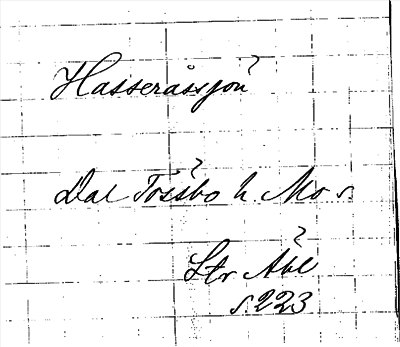 Hasseråssjön
Dal Tössbo h. Mo s.
Str Åbl
s. 223